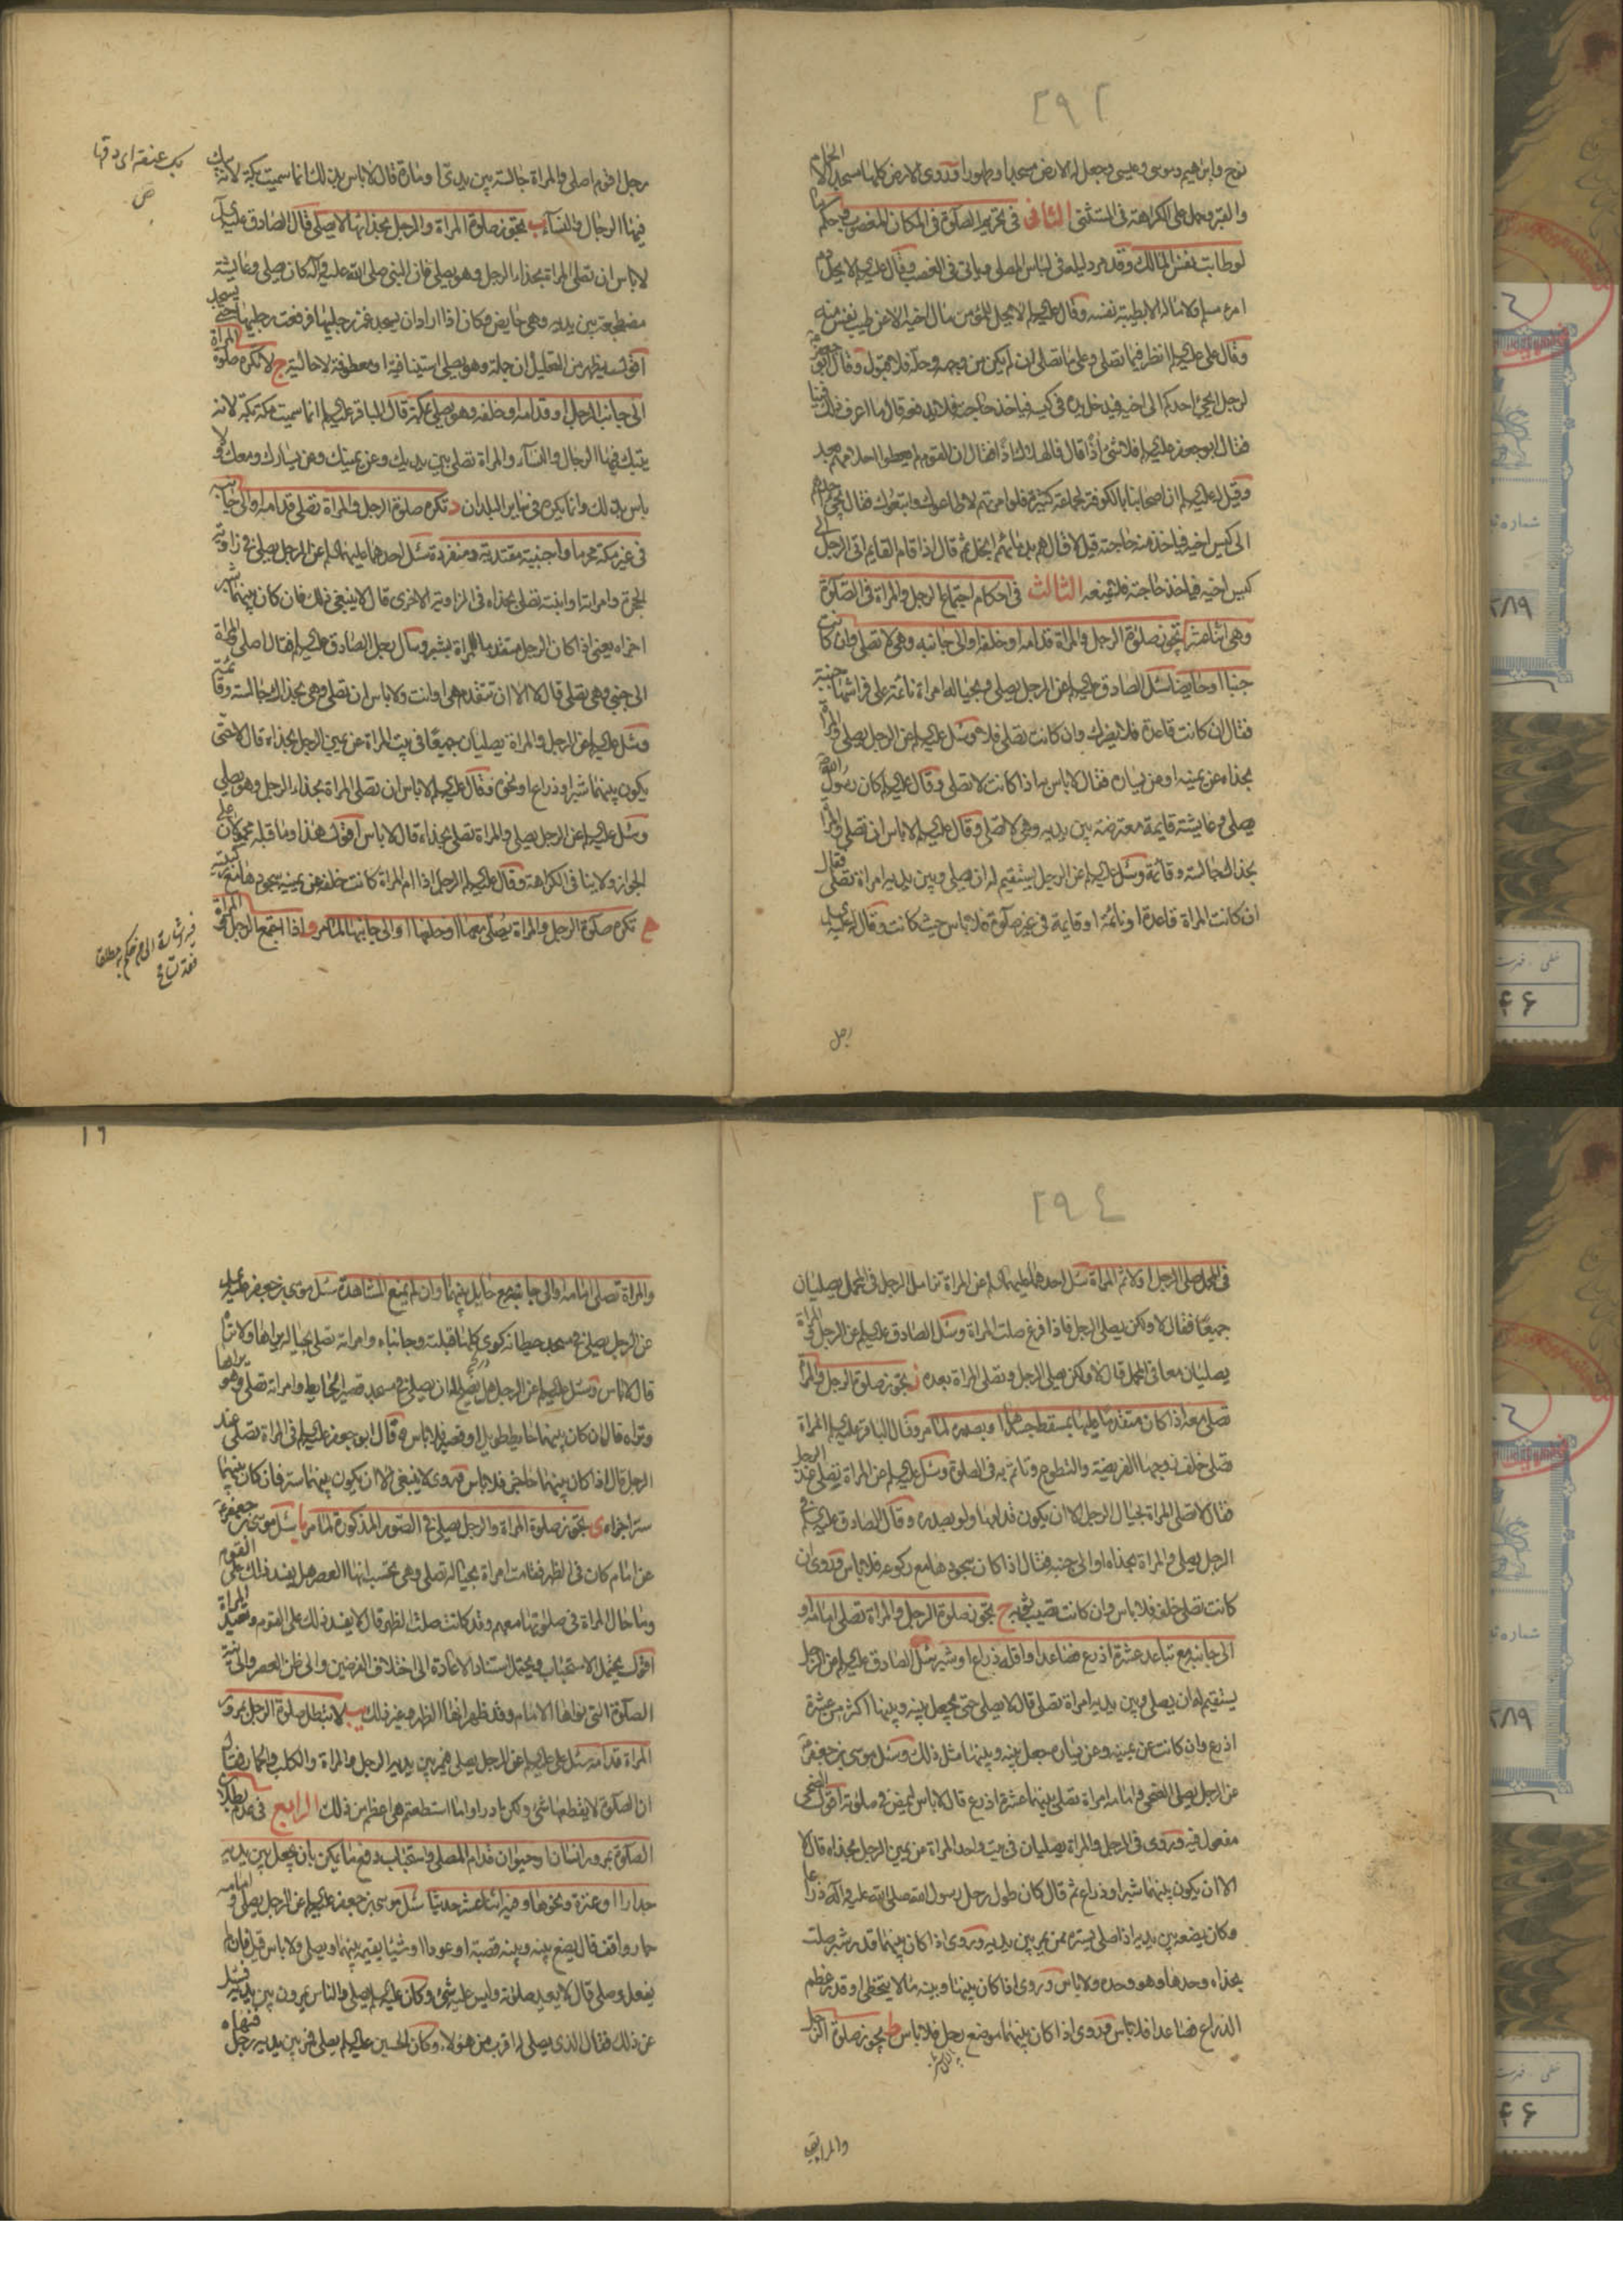 ٢٩٢
نوح وابرهيم وموسى وعيسى وجعل له الارض مسجدا وطهورا وروى الارض كلها مسجد الا الحمام
والقبر وحمل على الكراهة فى المستثنى الثانى فى تحريم الصلوة فى المكان المغصوب وحكم ما
لو طابت نفس المالك وقد مر دليله فى لباس المصلى وياتى فى الغصب وقال عليه السلم لا يحل دم
امرء مسلم ولا ماله الا بطيبة نفسه وقال عليه السلم لا يحل لمؤمن مال اخيه الا عن طيب نفس منه
وقال على عليه السلم انظر فيما تصلى وعلى ما تصلى ان لم يكن من وجهه وحله فلا قبول وقال ابو جعفر
لرجل يجئ احدكم الى اخيه فيدخل يده فى كيسه فياخذ حاجته فلا يدفعه قال ما اعرف ذلك فينا
فقال ابو جعفر عليه السلم فلا شئ اذًا قال فالهلاك اذًا فقال ان القوم لم يعطوا احلامهم بعد
وقيل له عليه السلم ان اصحابنا بالكوفة لجماعة كثيرة فلو امرتهم لاطاعوك واتبعوك فقال يجئ احدهم
الى كيس اخيه فياخذ منه حاجته قيل لا قال هم بدمائهم ابخل ثم قال اذا قام القايم اتى الرجل الى
كيس اخيه فياخذ حاجته فلا يمنعه الثالث فى احكام اجتماع الرجل والمراة فى الصلوة
وهى اثنا عشر ا تجوز صلوة الرجل والمراة قدامه او خلفه او الى جانبه وهى لا تصلى وان كانت
جنبا او حايضا سئل الصادق عليه السلم عن الرجل يصلى وبحياله امراة نائمة على فراشها جنبة
فقال ان كانت قاعدة فلا يضرك وان كانت تصلى فلا وسئل عليه السلم عن الرجل يصلى والمراة
بحذاه عن يمينه او عن يساره فقال لا باس به اذا كانت لا تصلى وقال عليه السلم كان رسول الله ص
يصلى وعايشة قايمة معترضة بين يديه وهى لا تصلى وقال عليه السلم لا باس ان تصلى والمراة
بحذاك جالسة وقائمة وسئل عليه السلم عن الرجل يستقيم له ان يصلى وبين يديه امراة تصلى فقال
ان كانت المراة قاعدة او نائمة او قايمة فى غير صلوة فلا باس حيث كانت وقال له عليه السلم
رجل
رجل اقوم اصلى والمراة جالسة بين يدى او مارة قال لا باس بذلك انما سميت بكة لانه يبك
فيها الرجال والنساء ب يجوز صلوة المراة والرجل بحذائها لا يصلى قال الصادق عليه السلم
لا باس ان تصلى المراة بحذاء الرجل وهو يصلى فان النبى صلى الله عليه واله كان يصلى وعايشة
مضطجعة بين يديه وهى حايض وكان اذا اراد ان يسجد غمز رجليها فرفعت رجليها حتى يسجد
اقول يظهر من التعليل ان جملة وهو يصلى استينافية او معطوفة لا حالية ج لا تكره صلوة المراة
الى جانب الرجل او قدامه او خلفه وهو يصلى بمكة قال الباقر عليه السلم انما سميت مكة بكة لانه
يبتك فيها الرجال والنساء والمراة تصلى بين يديك وعن يمينك وعن يسارك ومعك ولا
باس بذلك وانما يكره فى ساير البلدان د تكره صلوة الرجل والمراة تصلى قدامه او الى جانبه
فى غير مكة محرما واجنبية مقتدية ومنفردة سئل احدهما عليهما السلم عن الرجل يصلى فى زاوية
الحجرة وامراته او ابنته تصلى بحذاه فى الزاوية الاخرى قال لا ينبغى ذلك فان كان بينهما شبر
اجزاه يعنى اذا كان الرجل متقدما للمراة بشبر وسأل رجل الصادق عليه السلم فقال اصلى والمراة
الى جنبى وهى تصلى قال لا الا ان تتقدم هى او انت ولا باس ان تصلى وهى بحذاك جالسة وقائمة
وسئل عليه السلم عن الرجل والمراة يصليان جميعا فى بيت المراة عن يمين الرجل بحذاه قال لا حتى
يكون بينهما شبر او ذراع او نحوه وقال عليه السلم لا باس ان تصلى المراة بحذاء الرجل وهو يصلى
وسئل عليه السلم عن الرجل يصلى والمراة تصلى بحذاه قال لا باس اقول هذا وما قبله محمولان على
الجواز ولا ينافى الكراهة وقال عليه السلم الرجل اذا ام المراة كانت خلفه عن يمينه سجودها مع ركبتيه
ه تكره صلوة الرجل والمراة يصلى معها او خلفها او الى جانبها لما مر و اذا اجتمع الرجل والمراة
بك عنقه اى دقها
ص
١٦
٢٩٤
فى المحمل صلى الرجل اولا ثم المراة سئل احدهما عليهما السلم عن المراة تزامل الرجل فى المحمل يصليان
جميعا فقال لا ولكن يصلى الرجل فاذا فرغ صلت المراة وسئل الصادق عليه السلم عن الرجل والمراة
يصليان معا فى المحمل قال لا ولكن يصلى الرجل وتصلى المراة بعده ز يجوز صلوة الرجل والمراة
تصلى معه اذا كان متقدما عليها بمسقط جسدها او بصدره لما مر وقال الباقر عليه السلم المراة
تصلى خلف زوجها الفريضة والتطوع وتاتم به فى الصلوة وسئل عليه السلم عن المراة تصلى عند الرجل
فقال لا تصلى المراة بحيال الرجل الا ان يكون قدامها ولو بصدره وقال الصادق عليه السلم فى
الرجل يصلى والمراة بحذاه او الى جنبه فقال اذا كان سجودها مع ركوعه فلا باس وروى ان
كانت تصلى خلفه فلا باس وان كانت تصيب ثوبه ح يجوز صلوة الرجل والمراة تصلى امامه او
الى جانبه مع تباعد عشرة اذرع فصاعدا واقله ذراع او شبر سئل الصادق عليه السلم عن الرجل
يستقيم له ان يصلى وبين يديه امراة تصلى قال لا يصلى حتى يجعل بينه وبينها اكثر من عشرة
اذرع وان كانت عن يمينه وعن يساره جعل بينه وبينها مثل ذلك وسئل موسى بن جعفر ع
عن الرجل يصلى الضحى وامامه امراة تصلى بينهما عشرة اذرع قال لا باس ليمض فى صلوته اقول الضحى
مفعول فيه وروى فى الرجل والمراة يصليان فى بيت واحد المراة عن يمين الرجل بحذاه قال لا
الا ان يكون بينهما شبر او ذراع ثم قال كان طول رحل رسول الله صلى الله عليه واله ذراعا
وكان يضعه بين يديه اذا صلى يستره ممن يمر بين يديه وروى اذا كان بينهما قدر شبر صلت
بحذاه وحدها وهو وحده ولا باس وروى اذا كان بينها وبينه ما لا يتخطى او قدر عظم
الذراع فصاعدا فلا باس وروى اذا كان بينهما موضع رحل فلا باس ط يجوز صلوة الرجل
والمراة تصلى
والمراة تصلى امامه او الى جانبه مع حايل بينهما وان لم يمنع المشاهدة سئل موسى بن جعفر عليه السلم
عن الرجل يصلى فى مسجد حيطانه كوى كلها قبلته وجانباه وامراته تصلى بحياله يراها ولا تراه
قال لا باس وسئل عليه السلم عن الرجل هل يصلح له ان يصلى فى مسجد قصير الحايط وامراته تصلى وهو يراها
وتراه قال ان كان بينهما حايط طويل او قصير فلا باس وقال ابو جعفر عليه السلم فى المراة تصلى عند
الرجل قال اذا كان بينهما حاجز فلا باس وروى لا ينبغى الا ان يكون بينهما ستر فان كان بينهما
ستر اجزاه ى يجوز صلوة المراة والرجل يصلى فى الصور المذكورة لما مر يا سئل موسى بن جعفر ع
عن امام كان فى الظهر فقامت امراة بحياله تصلى وهى تحسب انها العصر هل يفسد ذلك على القوم
وما حال المراة فى صلوتها معهم وقد كانت صلت الظهر قال لا يفسد ذلك على القوم وتعيد المراة
اقول يحتمل الاستحباب ويحتمل استناد الاعادة الى اختلاف الفرضين والى ظن العصر والى نية
الصلوة التى نواها الامام وقد ظهر انها الظهر وغير ذلك يب لا تبطل صلوة الرجل بمرور
المراة قدامه سئل على عليه السلم عن الرجل يصلى فيمر بين يديه الرجل والمراة والكلب والحمار فقال
ان الصلوة لا يقطعها شئ ولكن ادراوا ما استطعتم هى اعظم من ذلك الرابع فى عدم بطلان
الصلوة بمرور انسان او حيوان قدام المصلى واستحباب دفع ما يمكن بان يجعل بين يديه
جدارا او عنزة ونحوها وفيه اثنا عشر حديثا سئل موسى بن جعفر عليه السلم عن الرجل يصلى وامامه
حمار واقف قال يضع بينه وبينه قصبة او عودا او شيئا يقيمه بينهما ويصلى ولا باس قيل فان لم
يفعل وصلى قال لا يعيد صلوته وليس عليه شئ وكان عليه السلم يصلى والناس يمرون بين يديه فسئل
عن ذلك فقال الذى يصلى له اقرب من هؤلاء وكان الحسين عليه السلم يصلى فمر بين يديه رجل فنهاه
شماره
خطى . فهرست
٤۶